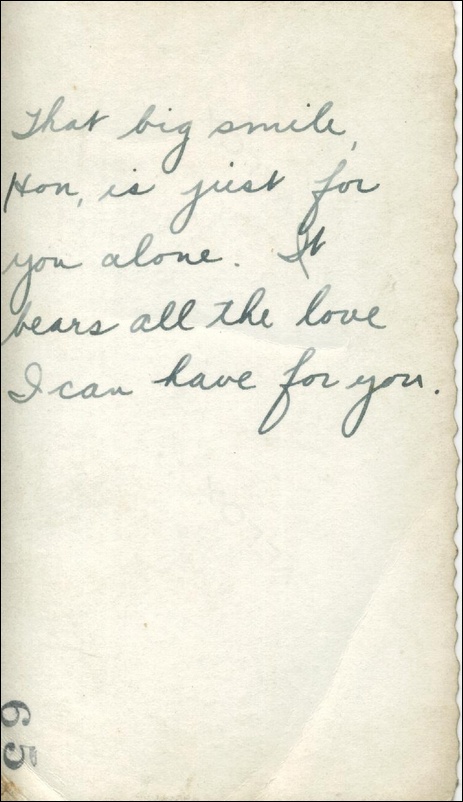 That big smile,
Hon, is just for
you alone. It
bears all the love
I can have for you.
65